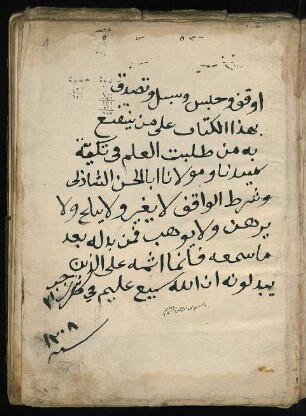 اوقف وحبس وسبل وتصدق
بهذا الكتاب على من ينتفع
به من طلبت العلم في تكية
سيدنا ومولانا ابا الحسن الشاذلي
وشرط الواقف لا يغير ولا يباع ولا
يرهن ولا يوهب فمن بدله بعد
ما سمعه فانما اثمه على الذين
يبدلونه ان الله سميع عليم في
رجب
سنة ١٢٠٨